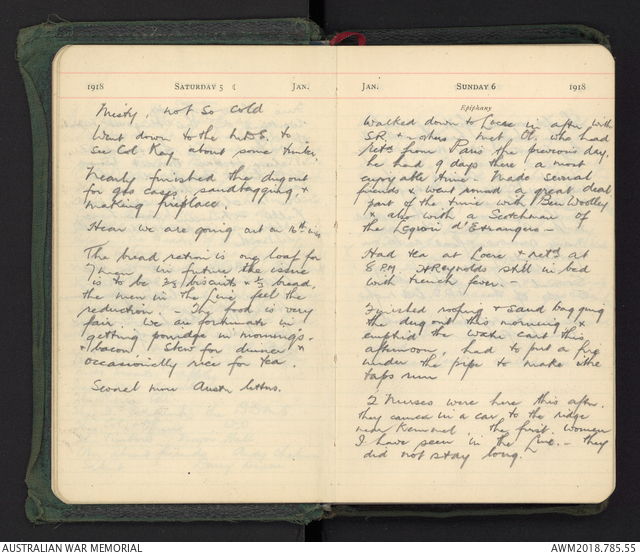 1918 SATURDAY 5 JAN.
Misty, not so cold
Went down to the to
see Col Kay about some
Nearly finished the dugout
for gas cases, sandbagging, &
making fireplace.
Hear we are going out on 16th
The bread ration is one loaf for
7 men in future the issue
is to be biscuits & bread,
the men in the Line feel the
reduction. - The food is very
fair we are fortunate in
getting porridge in mornings -
& bacon, stew for dinner &
occasionally rice for tea.
Scored nine Austn letters.
JAN. SUNDAY 6 1918
Epiphany
Walked down to Locre in after. with
S.R. & others, met who had
retd from Paris the previous day,
he had 9 days there a most
enjoyable time - Made several
friends & went round a great deal
part of the time with Ben Woolley
& also with a Scotchman of
the Legion d'Etrangers -
Had tea at Locre & retd at
8 P.M. Reynolds still in bed
with trench fever. -
Finished roofing & sand bagging
the dug out this morning &
emptied the water cart this
afternoon, had to put a fire
under the pipe to make the
taps run
2 Nurses were here this after.
they came in a car to the ridge
near Kemmel, the first women
I have seen in the Line. - they
did not stay long.
AUSTRALIAN WAR MEMORIAL
AWM2018.785.55